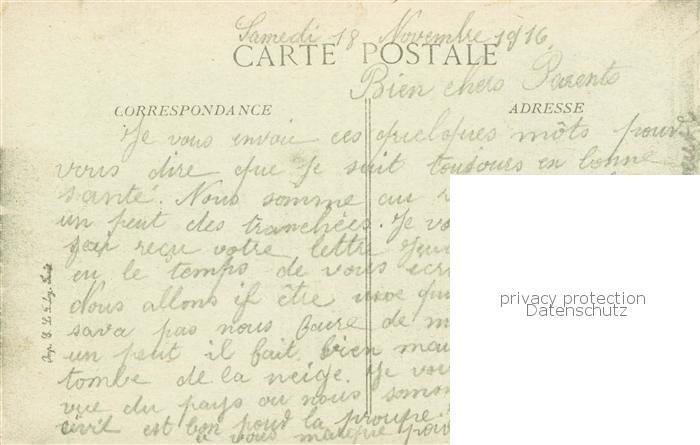 Samedi 18 Novembre 1916
CARTE POSTALE
Bien chers Parents
CORRESPONDANCE
ADRESSE
Je vous envoie ces quelques môts pour
vous dire que je suit toujours en bonne
santé. Nous somme au
un peut des tranchées. Je
j'ai reçu votre lettre
eu le temps de vous
Nous allons if être une
sava pas nous faire de
un peut il fait bien
tombe de la neige. Je
vue du pays ou nous
civil est bon pour la
vous
Imp.
privacy protection
Datenschutz